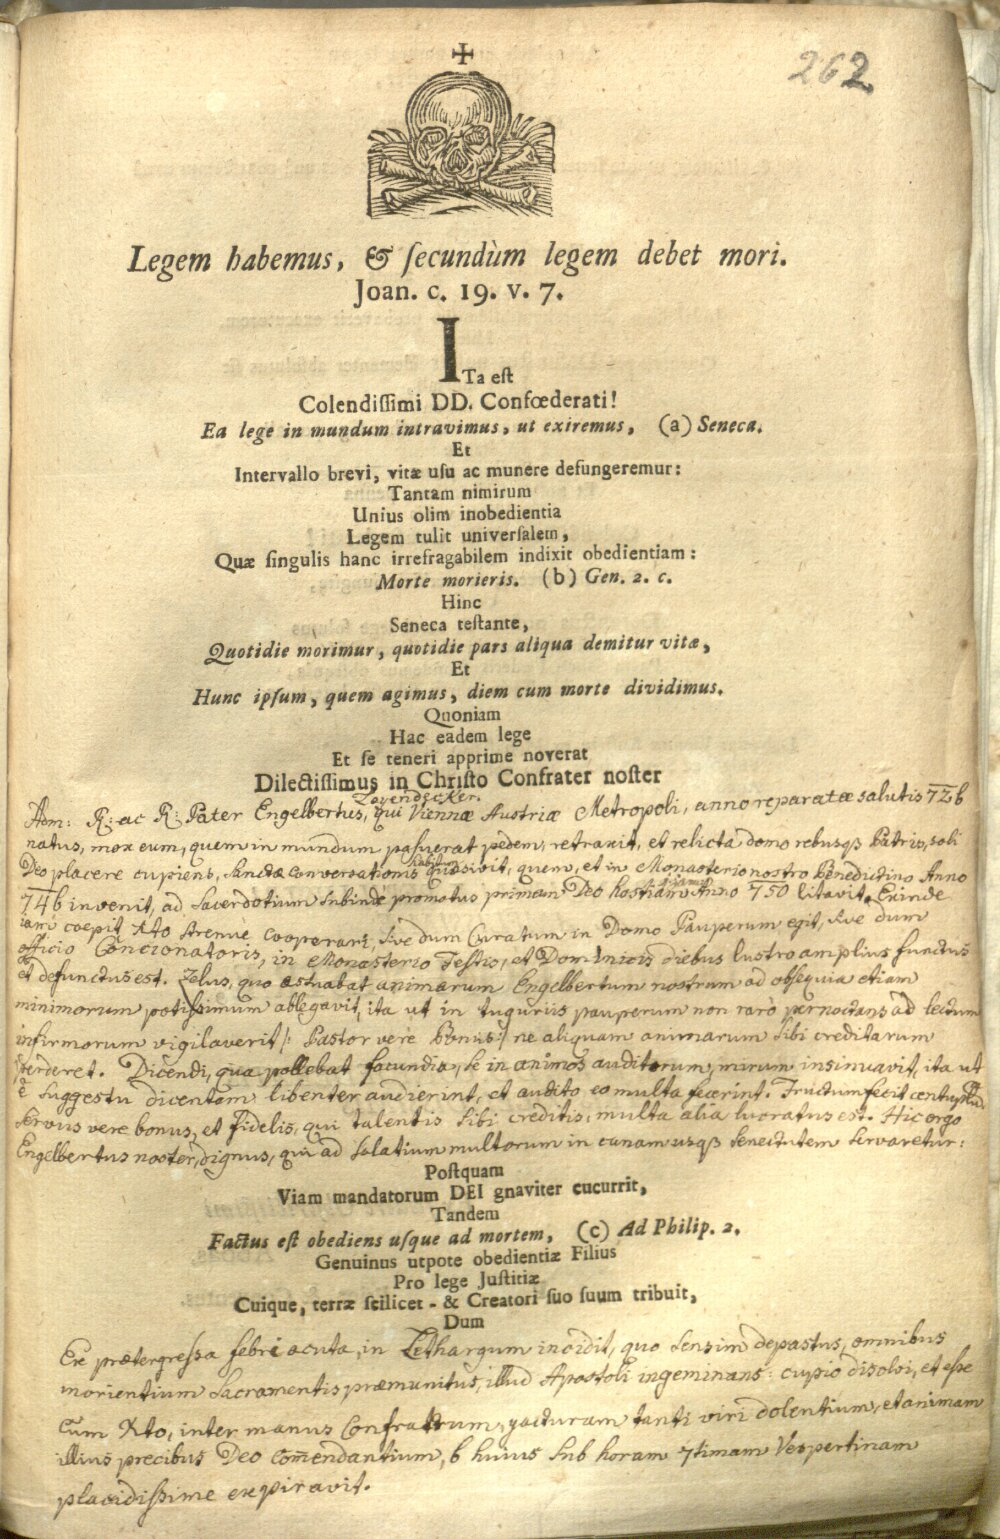 262
Legem habemus, & ſecundùm legem debet mori.
Joan. c. 19. v. 7.
ITa eſt
Colendiſſimi DD. Confœderati!
Ea lege in mundum intravimus, ut exiremus, (a) Seneca.
Et
Intervallo brevi, vitæ uſu ac munere defungeremur:
Tantam nimirum
Unius olim inobedientia
Legem tulit univerſalem,
Quæ ſingulis hanc irrefragabilem indixit obedientiam:
Morte morieris. (b) Gen. 2. c.
Hinc
Seneca teſtante,
Quotidie morimur, quotidie pars aliqua demitur vitæ,
Et
Hunc ipſum, quem agimus, diem cum morte dividimus.
Quoniam
Hac eadem lege
Et ſe teneri apprime noverat
Dilectiſſimus in Chriſto Confrater noſter
Adm: R: ac R: Pater Engelbertus, qui Viennæ Austriæ Metropoli, anno reparatæ salutis 72b
natus, mox eum, quem in mundum posuerat pedem, retraxit, et relicta domo rebusqß Patris, soli
Deo placere cupiens, sanctæ conversationis habitum quæsivit, quem, et in Monasterio nostro Benedictino Anno
74b invenit, ad Sacerdotium subinde promotus primam Deo hostiam Anno 750 litavit. Exinde
iam coepit Xto strenuè cooperari, sive dum Curatum in Domo Pauperum egit, sive dum
officio Concionatoris, in Monasterio Festis, et Dominicis diebus lustro amplius functus
et defunctus est. Zelus, quo æstuabat animarum Engelbertum nostrum ad obsequia etiam
minimorum potissimum ablegavit, ita ut in tuguriis pauperum non rarò pernoctans ad lectum
infirmorum vigilaverit |: Pastor verè bonus :| ne aliquam animarum sibi creditarum
perderet. Dicendi, qua pollebat facundia, se in animos auditorum, mirum insinuavit, ita ut
è suggestu dicentem libenter audierint, et audito eo multa fecerint. Fructum fecit centuplum
servus vere bonus, et fidelis, qui talentis sibi creditis, multa alia lucratus est. Hic ergo
Engelbertus noster, dignus, qui ad solatium multorum in canam usqß senectutem servaretur:
Poſtquam
Viam mandatorum DEI gnaviter cucurrit,
Tandem
Factus eſt obediens uſque ad mortem, (c) Ad Philip. 2.
Genuinus utpote obedientiæ Filius
Pro lege Juſtitiæ
Cuique, terræ ſcilicet - & Creatori ſuo ſuum tribuit,
Dum
Ex prætergressa febri acuta, in Lethargum incidit, quo sensim depastus, omnibus
morientium Sacramentis præmunitus, illud Apostoli ingeminans: cupio disolvi, et esse
cum Xto, inter manus Confratrum, yacturam tanti viri dolentium, et animam
illius precibus Deo comendantium, b huius sub horam 7timam Vespertinam
placidissime expiravit.